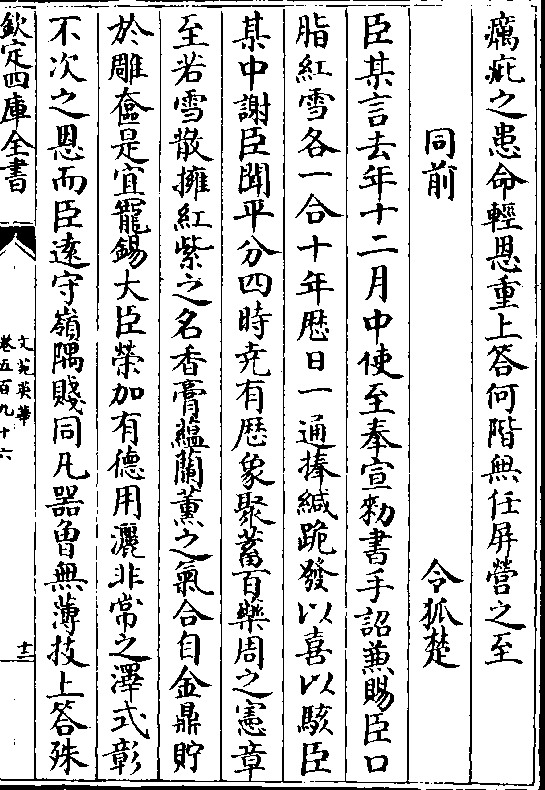 癘疵之患命輕恩重上答何階無任屏營之至
同前 令狐楚
臣某言去年十二月中使至奉宣勑書手詔兼賜臣口
脂紅雪各一合十年歴日一通捧緘跪發以喜以駭臣
某中謝臣聞平分四時尭有厯象聚蓄百藥周之憲章
至若雪散擁紅紫之名香膏蘊蘭薰之氣合自金鼎貯
於雕奩是宜寵錫大臣榮加有德用灑非常之澤式彰
不次之恩而臣逺守嶺隅賤同凡器曽無薄技上答殊
欽定四庫全書
文苑英華
卷五百九十六
十二